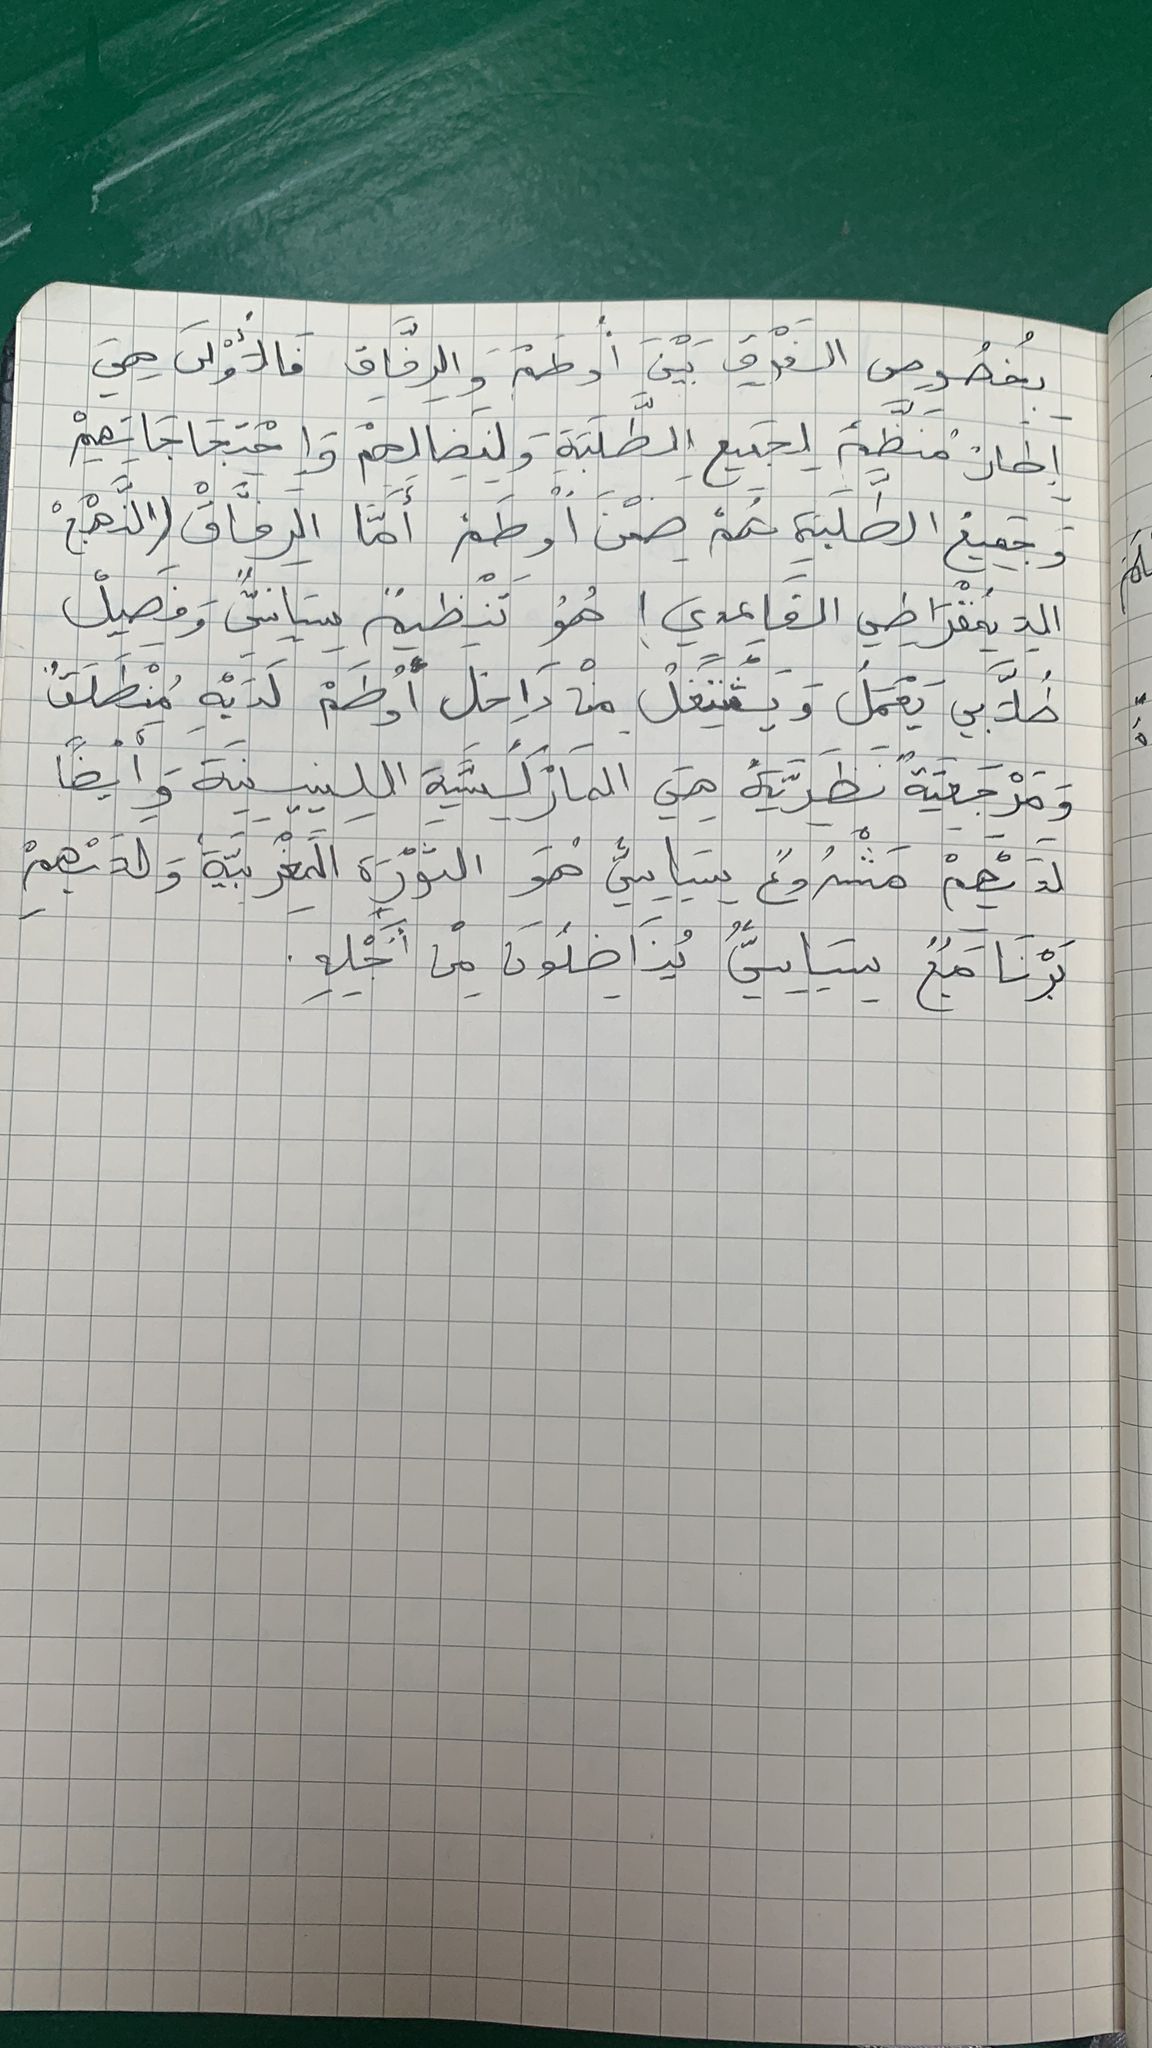 بِخُصُوصِ الفَرْقِ بَيْنَ أُوطَمْ وَالرِفَّاقِ فَالأُوْلَى هِيَ
إِطَارٌ مُنَظِّمٌ لِجَمِيعِ الطَّلَبَةِ وَلِنِضَالِهِمْ وَاِحْتِجَاجَاتِهِمْ
وَجَمِيعُ الطَّلَبَةِ هُمْ ضِمْنَ أُوطَمْ أَمَّا الرِفَّاقْ (النَّهْجُ
الدِيمُقْرَاطِي القَاعِدِي) هُوَ تَنْظِيمٌ سِيَاسِيٌّ وَفَصِيلْ
طُلَّابِي يَعْمَلُ وَيَشْتَغِلُ مِنْ دَاخِلِ أُوطَمْ لَدَيْهِ مُنْطَلَقٌ
وَمَرْجَعِيَةٌ نَظَرِيَّةٌ هِيَ المَارْكْسِيَّةِ اللِينِينِيَةَ وَأَيْضًا
لَدَيْهِمْ مَشْرُوعٌ سِيَاسِيٌّ هُوَ الثَوْرَة المَغْرِبِيَّةِ وَلَدَيْهِمْ
بَرْنَامَجٌ سِيَاسِيٌّ يُنَاضِلُونَ مِنْ أَجْلِهِ.